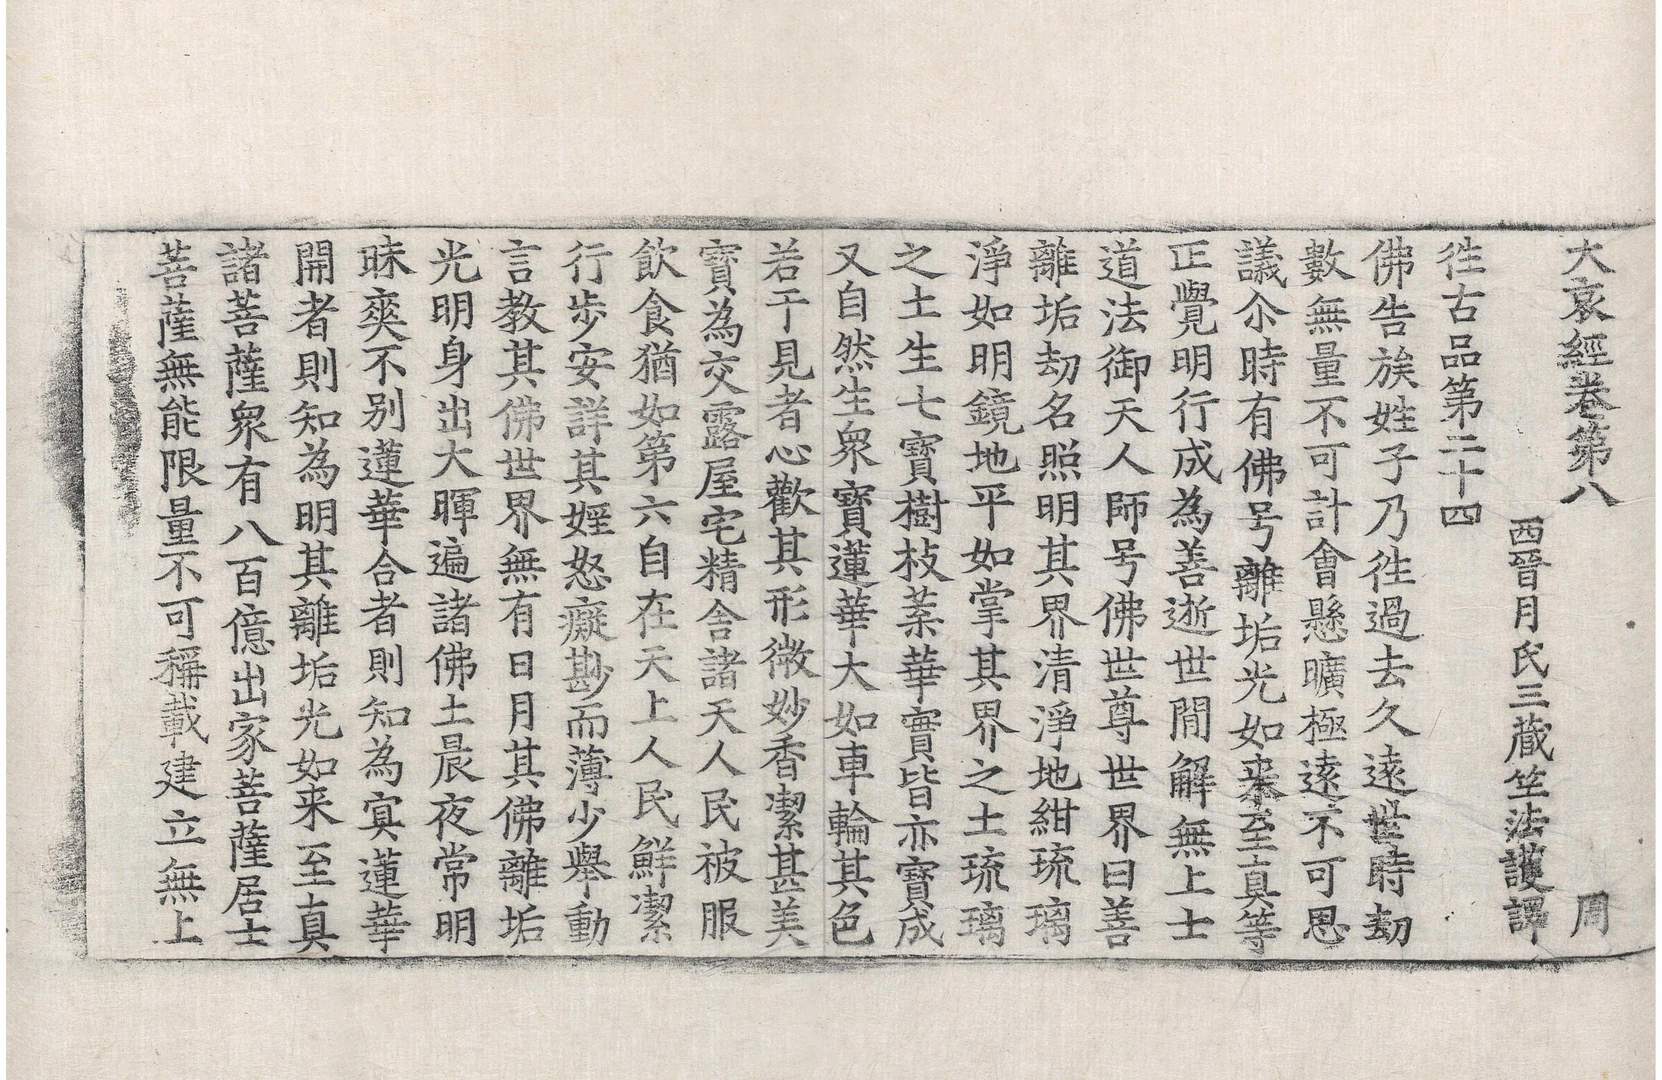 大哀經卷第八　周
西晉月氏三藏竺法護譯
徃古品第二十四
佛告族姓子乃徃過去久遠世時劫
數無量不可計會懸曠極遠不可思
議尒時有佛号離垢光如来至真等
正覺明行成為善逝世間解無上士
道法御天人師号佛世尊世界曰善
離垢劫名照明其界清淨地紺琉璃
淨如明鏡地平如掌其界之土琉璃
之土生七寶樹枝葉華實皆亦寶成
又自然生衆寶蓮華大如車輪其色
若干見者心歡其形微妙香潔甚美
寶為交露屋宅精舍諸天人民被服
飲食猶如第六自在天上人民鮮潔
行步安詳其婬怒癡尠而薄少舉動
言教其佛世界無有日月其佛離垢
光明身出大暉遍諸佛土晨夜常明
昧爽不別蓮華合者則知為冥蓮華
開者則知為明其離垢光如来至真
諸菩薩衆有八百億出家菩薩居士
菩薩無能限量不可稱載建立無上